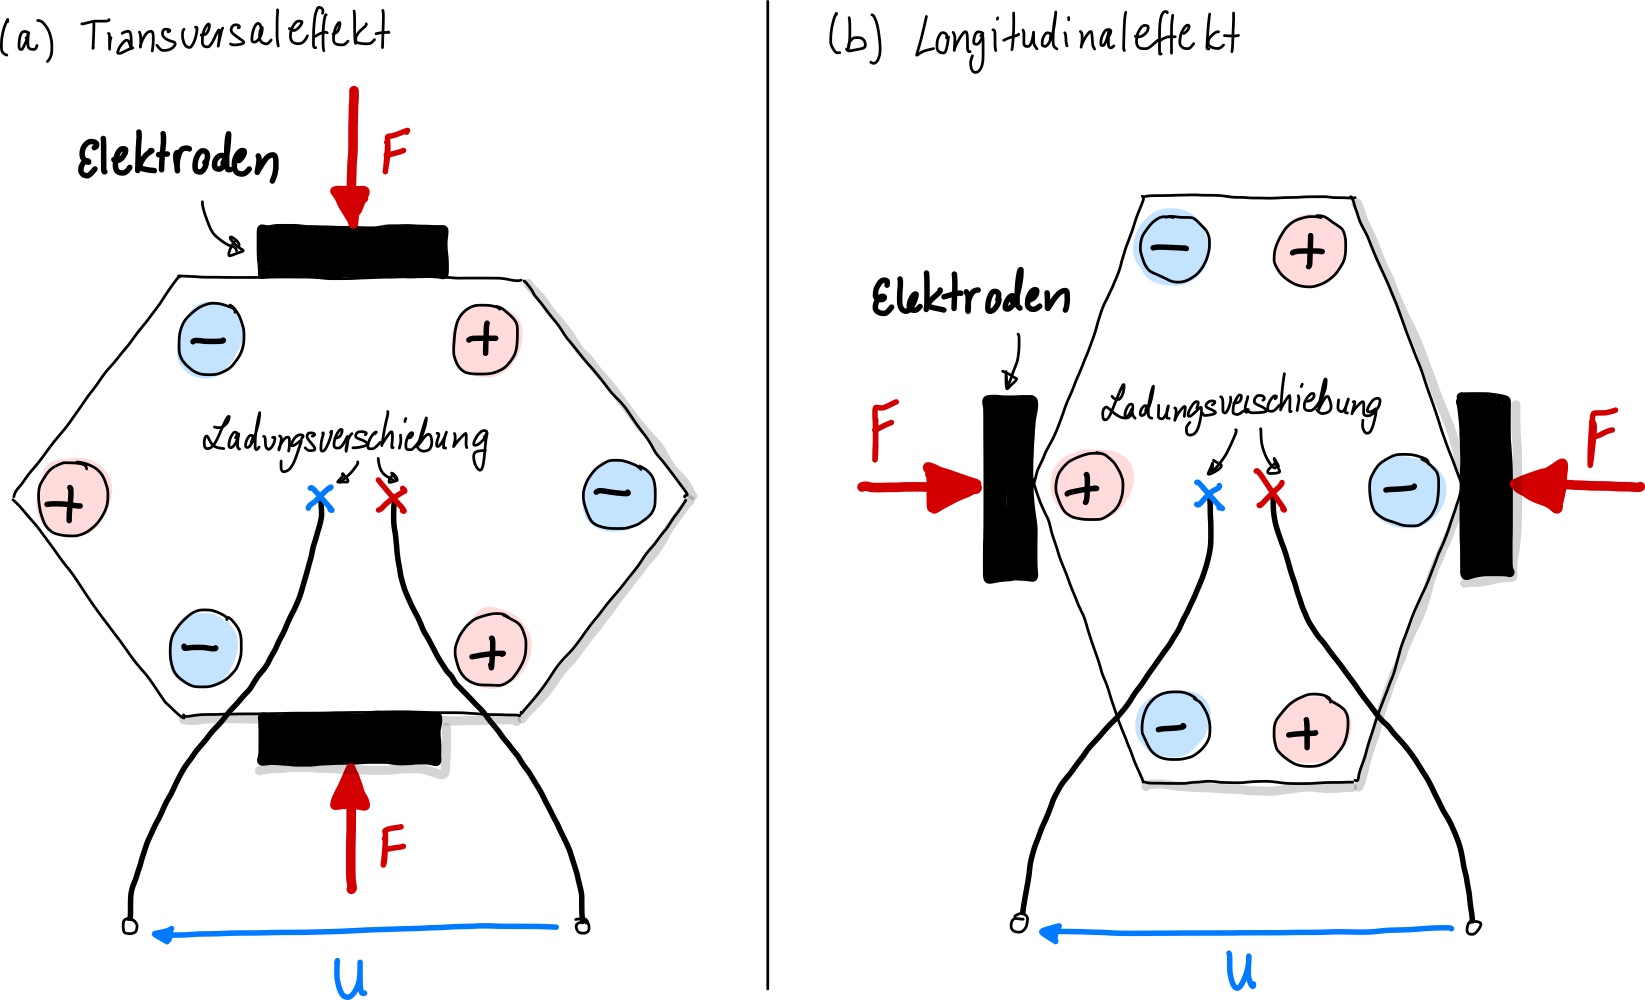 (a) Transversaleffekt
F
Elektroden
−
+
Ladungsverschiebung
+
−
−
+
F
U
(b) Longitudinaleffekt
−
+
Elektroden
Ladungsverschiebung
F
F
+
−
−
+
U